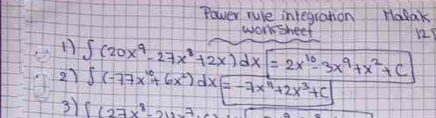 Power rule integration Malak
worksheet 12
1) ∫(20x⁹-27x⁸+2x)dx = 2x¹⁰-3x⁹+x²+C
2) ∫(-77x¹⁰+6x²)dx = -7x¹¹+2x³+C
3) ∫(27x⁸